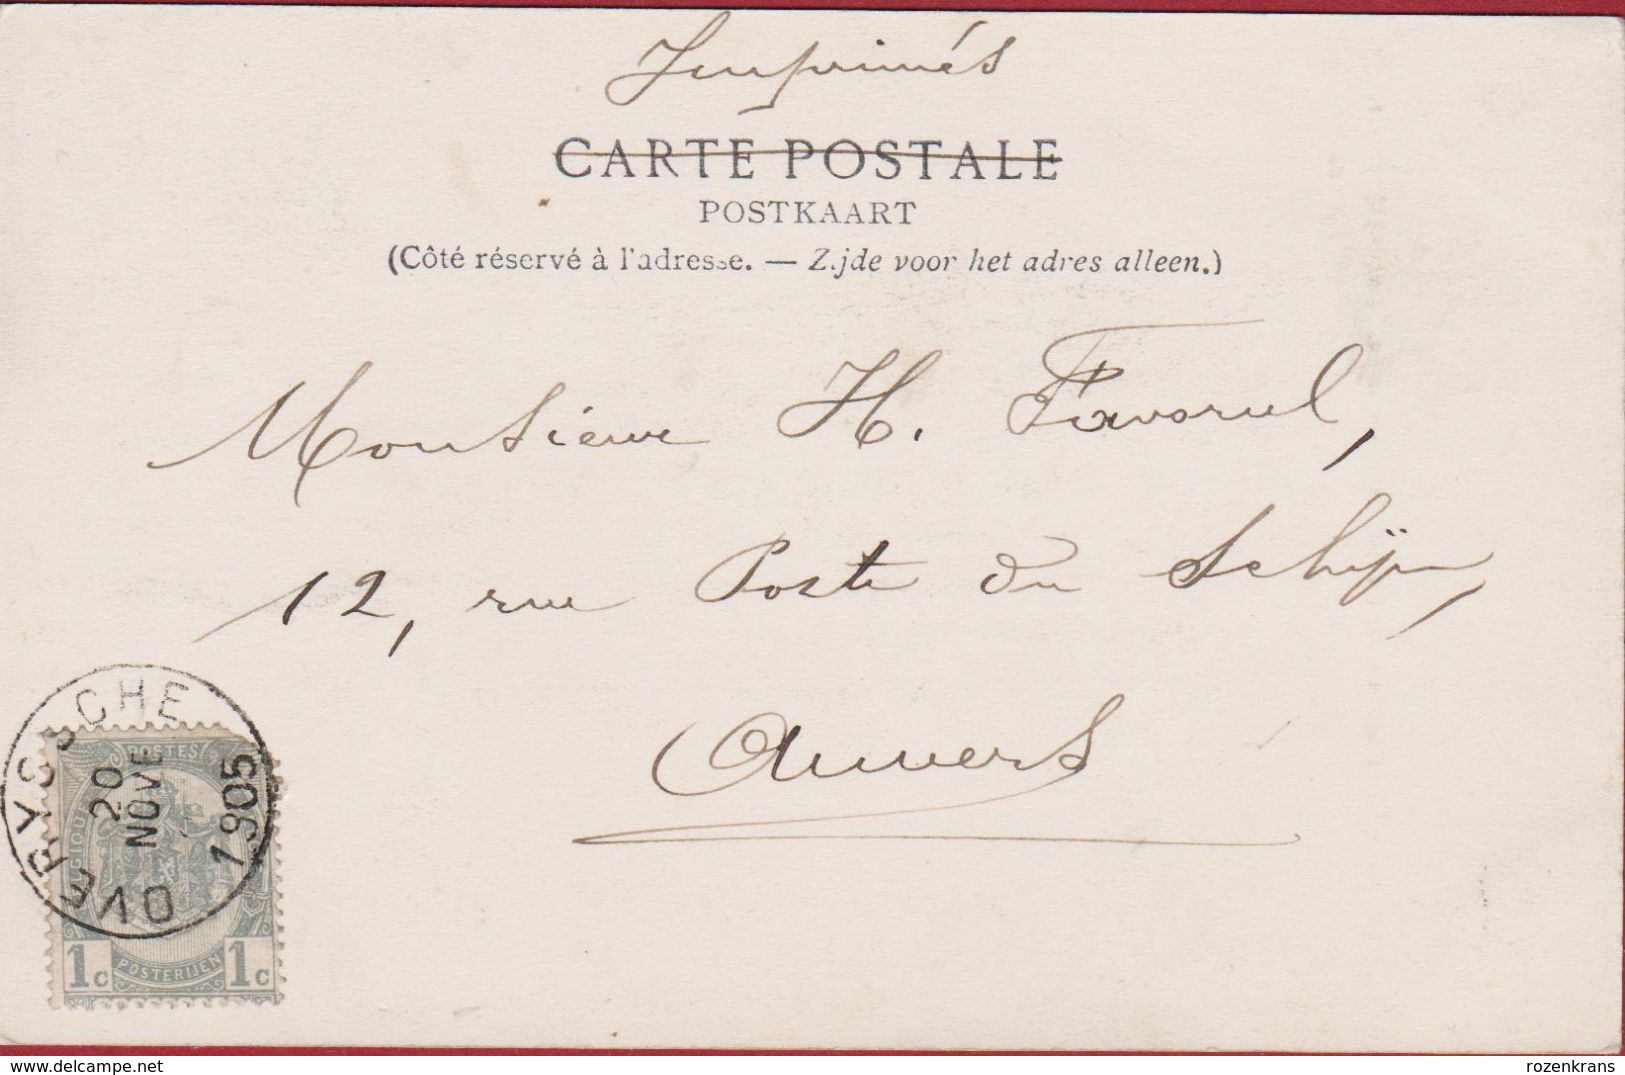 Imprimés
CARTE POSTALE
POSTKAART
(Côté réservé à l'adresse. — Zijde voor het adres alleen.)
Monsieur H. Favorul,
12, rue Poste du Schijn,
Anvers
OVERYSSCHE
20
NOVE
1905
POSTES
BELGIQUE
1c POSTERIJEN 1c
delcampe.net
rozenkrans